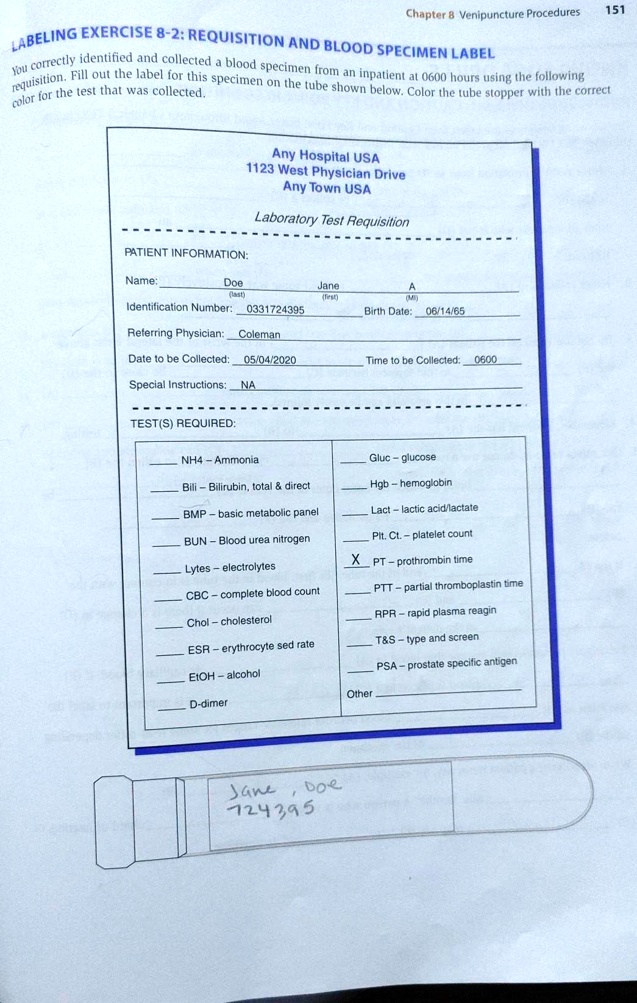 Chapter 8 Venipuncture Procedures 151
LABELING EXERCISE 8-2: REQUISITION AND BLOOD SPECIMEN LABEL
You correctly identified and collected a blood specimen from an inpatient at 0600 hours using the following
requisition. Fill out the label for this specimen on the tube shown below. Color the tube stopper with the correct
color for the test that was collected.
Any Hospital USA
1123 West Physician Drive
Any Town USA
Laboratory Test Requisition
PATIENT INFORMATION:
Name: Doe Jane A
(last) (first) (MI)
Identification Number: 0331724395 Birth Date: 06/14/65
Referring Physician: Coleman
Date to be Collected: 05/04/2020 Time to be Collected: 0600
Special Instructions: NA
TEST(S) REQUIRED:
NH4 – Ammonia
Bili – Bilirubin, total & direct
BMP – basic metabolic panel
BUN – Blood urea nitrogen
Lytes – electrolytes
CBC – complete blood count
Chol – cholesterol
ESR – erythrocyte sed rate
EtOH – alcohol
D-dimer
Gluc – glucose
Hgb – hemoglobin
Lact – lactic acid/lactate
Plt. Ct. – platelet count
X PT – prothrombin time
PTT – partial thromboplastin time
RPR – rapid plasma reagin
T&S – type and screen
PSA – prostate specific antigen
Other
Jane, Doe
724395